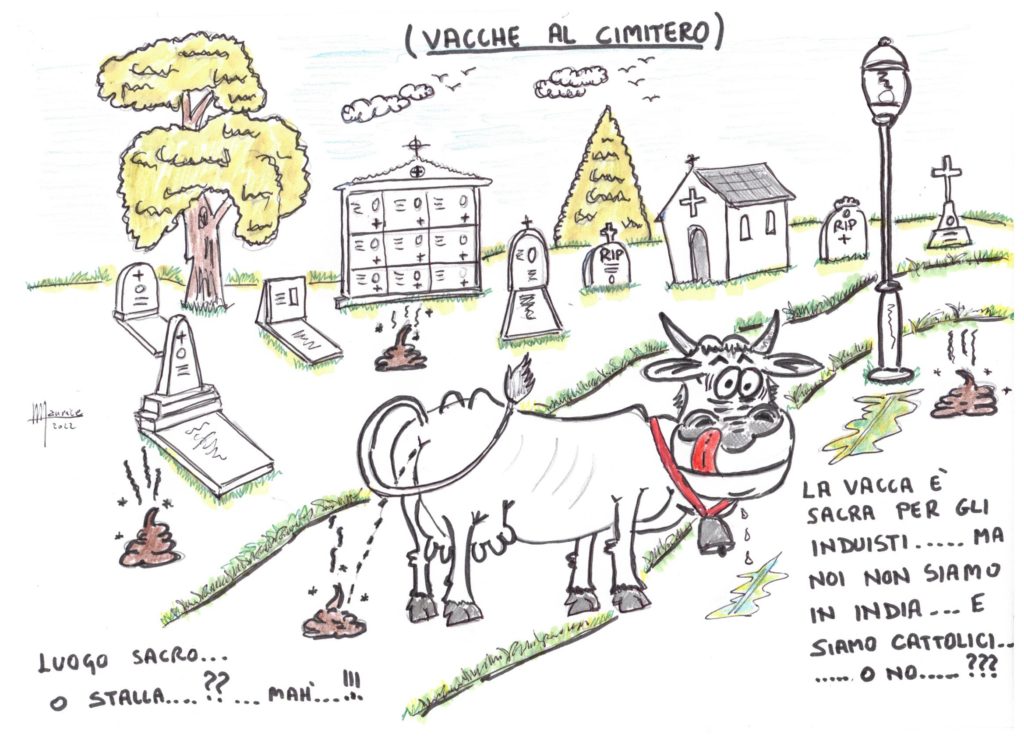 (VACCHE AL CIMITERO)
RIP
RIP
Maurice
2022
LA VACCA È
SACRA PER GLI
INDUISTI...... MA
NOI NON SIAMO
IN INDIA.... E
SIAMO CATTOLICI..
..... O NO.....???
LUOGO SACRO...
O STALLA....?? ... MAH̀....!!!